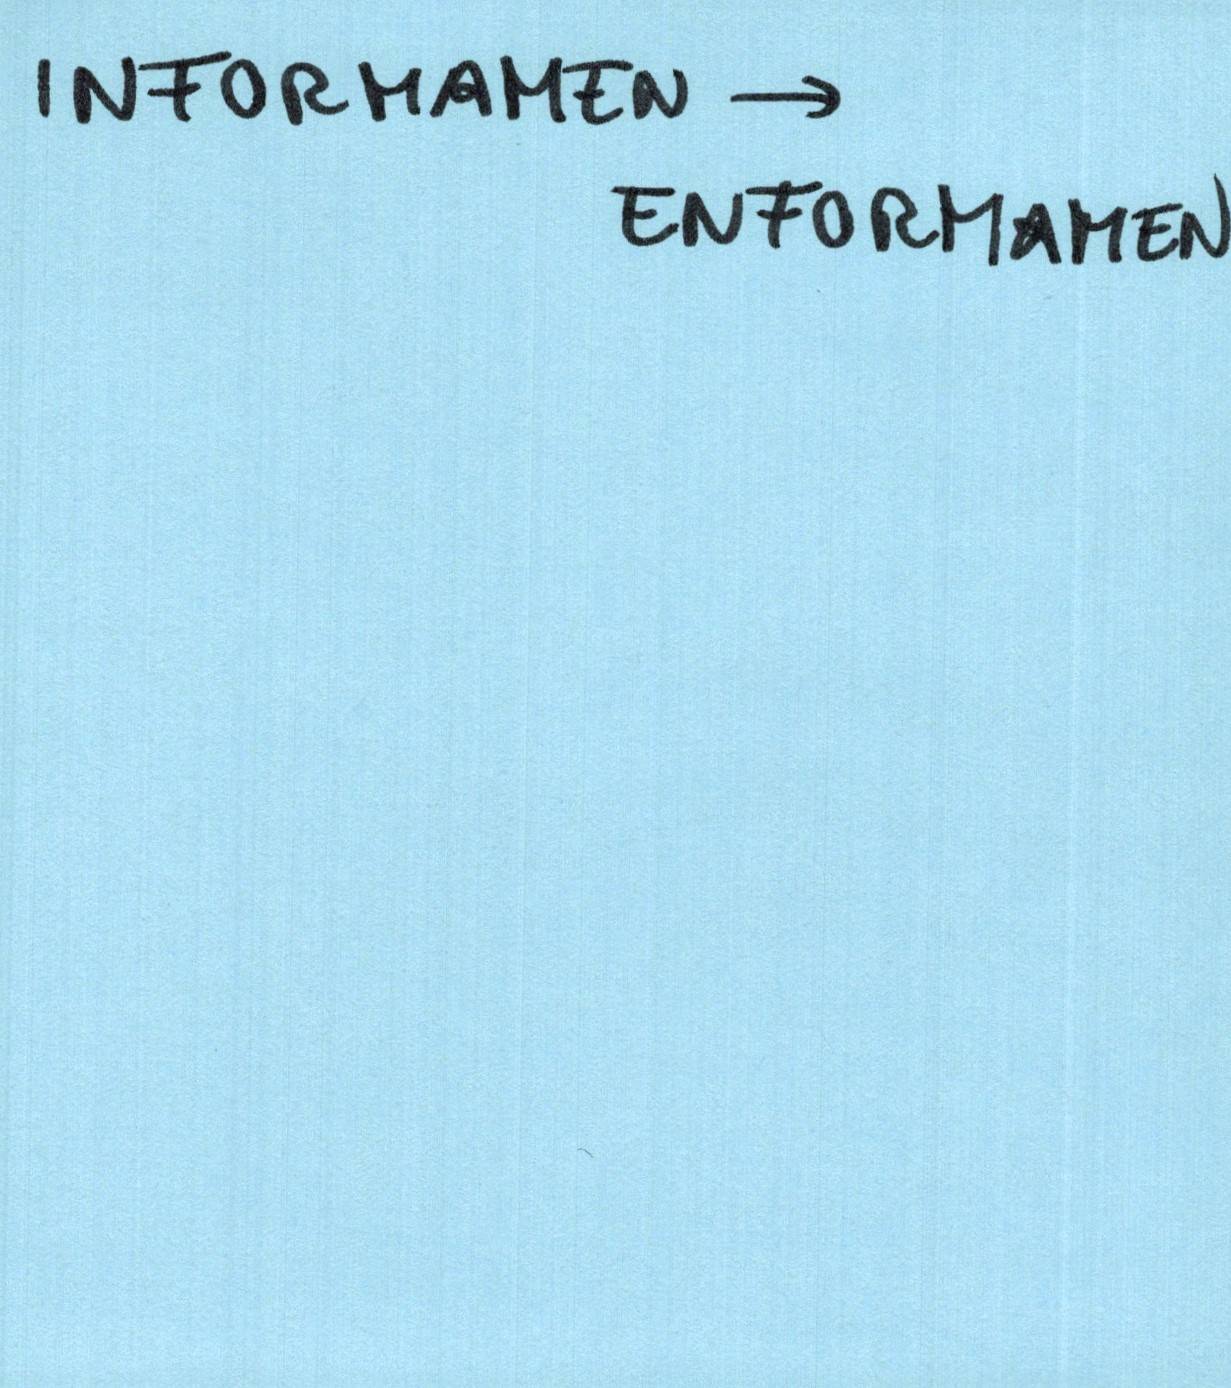 INFORMAMEN →
ENFORMAMEN